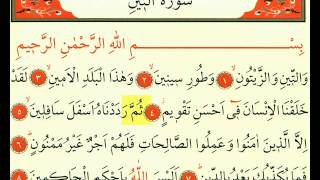 سُورَةُ التِّينِ
بِسْمِ اللّٰهِ الرَّحْمٰنِ الرَّحٖيمِ
وَالتّٖينِ وَالزَّيْتُونِۙ ﴿١﴾ وَطُورِ سٖينٖينَۙ ﴿٢﴾ وَهٰذَا الْبَلَدِ الْاَمٖينِۙ ﴿٣﴾ لَقَدْ
خَلَقْنَا الْاِنْسَانَ فٖٓى اَحْسَنِ تَقْوٖيمٍۘ ﴿٤﴾ ثُمَّ رَدَدْنَاهُ اَسْفَلَ سَافِلٖينَۙ ﴿٥﴾
اِلَّا الَّذٖينَ اٰمَنُوا وَعَمِلُوا الصَّالِحَاتِ فَلَهُمْ اَجْرٌ غَيْرُ مَمْنُونٍۜ ﴿٦﴾
فَمَا يُكَذِّبُكَ بَعْدُ بِالدّٖينِۜ ﴿٧﴾ اَلَيْسَ اللّٰهُ بِاَحْكَمِ الْحَاكِمٖينَ ﴿٨﴾